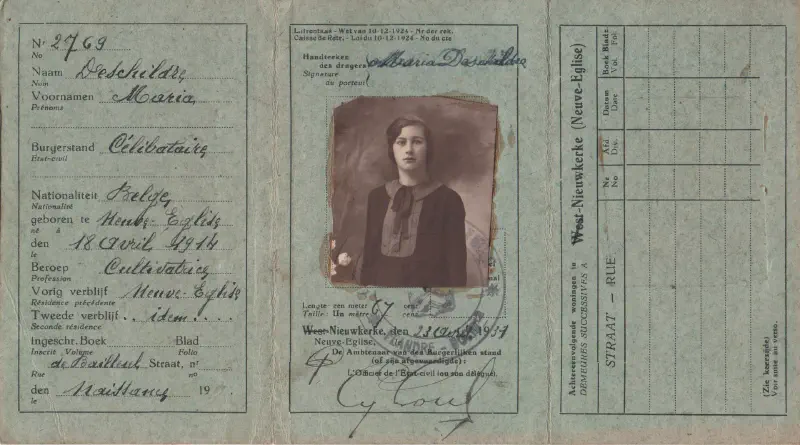 Nr 2769
No
Naam Deschildre
Nom
Voornamen Maria
Prénoms
Burgerstand Célibataire
Etat-civil
Nationaliteit Belge
Nationalité
geboren te Neuve-Eglise
né à
den 18 Avril 1914
le
Beroep Cultivatrice
Profession
Vorig verblijf Neuve-Eglise
Résidence précédente
Tweede verblijf .. idem . . .
Seconde résidence
Ingeschr. Boek Blad
Inscrit Volume Folio
de Bailleul Straat, nr
Rue no
den Naissance 19
le
Wet van 10-12-1924 - Nr der rek.
Loi du 10-12-1924 - No du cte
Handteeken
des dragers Maria Deschildre
Signature
du porteur
Lengte: een meter 67 cent.
Taille: Un mètre cent.
West-Nieuwkerke, den 23 1931
Neuve-Eglise,
De Ambtenaar van den Burgerlijken stand
(of zijn afgevaardigde):
L'Officier de l'Etat-civil (ou son délégué),
Achtereenvolgende woningen in West-Nieuwkerke (Neuve-Eglise)
DEMEURES SUCCESSIVES A
STRAAT — RUE
Nr
No
Afd
Dis.
Datum
Date
Boek Bladz
Vol. Fol.
(Zie keerzijde)
Voir suite au verso.